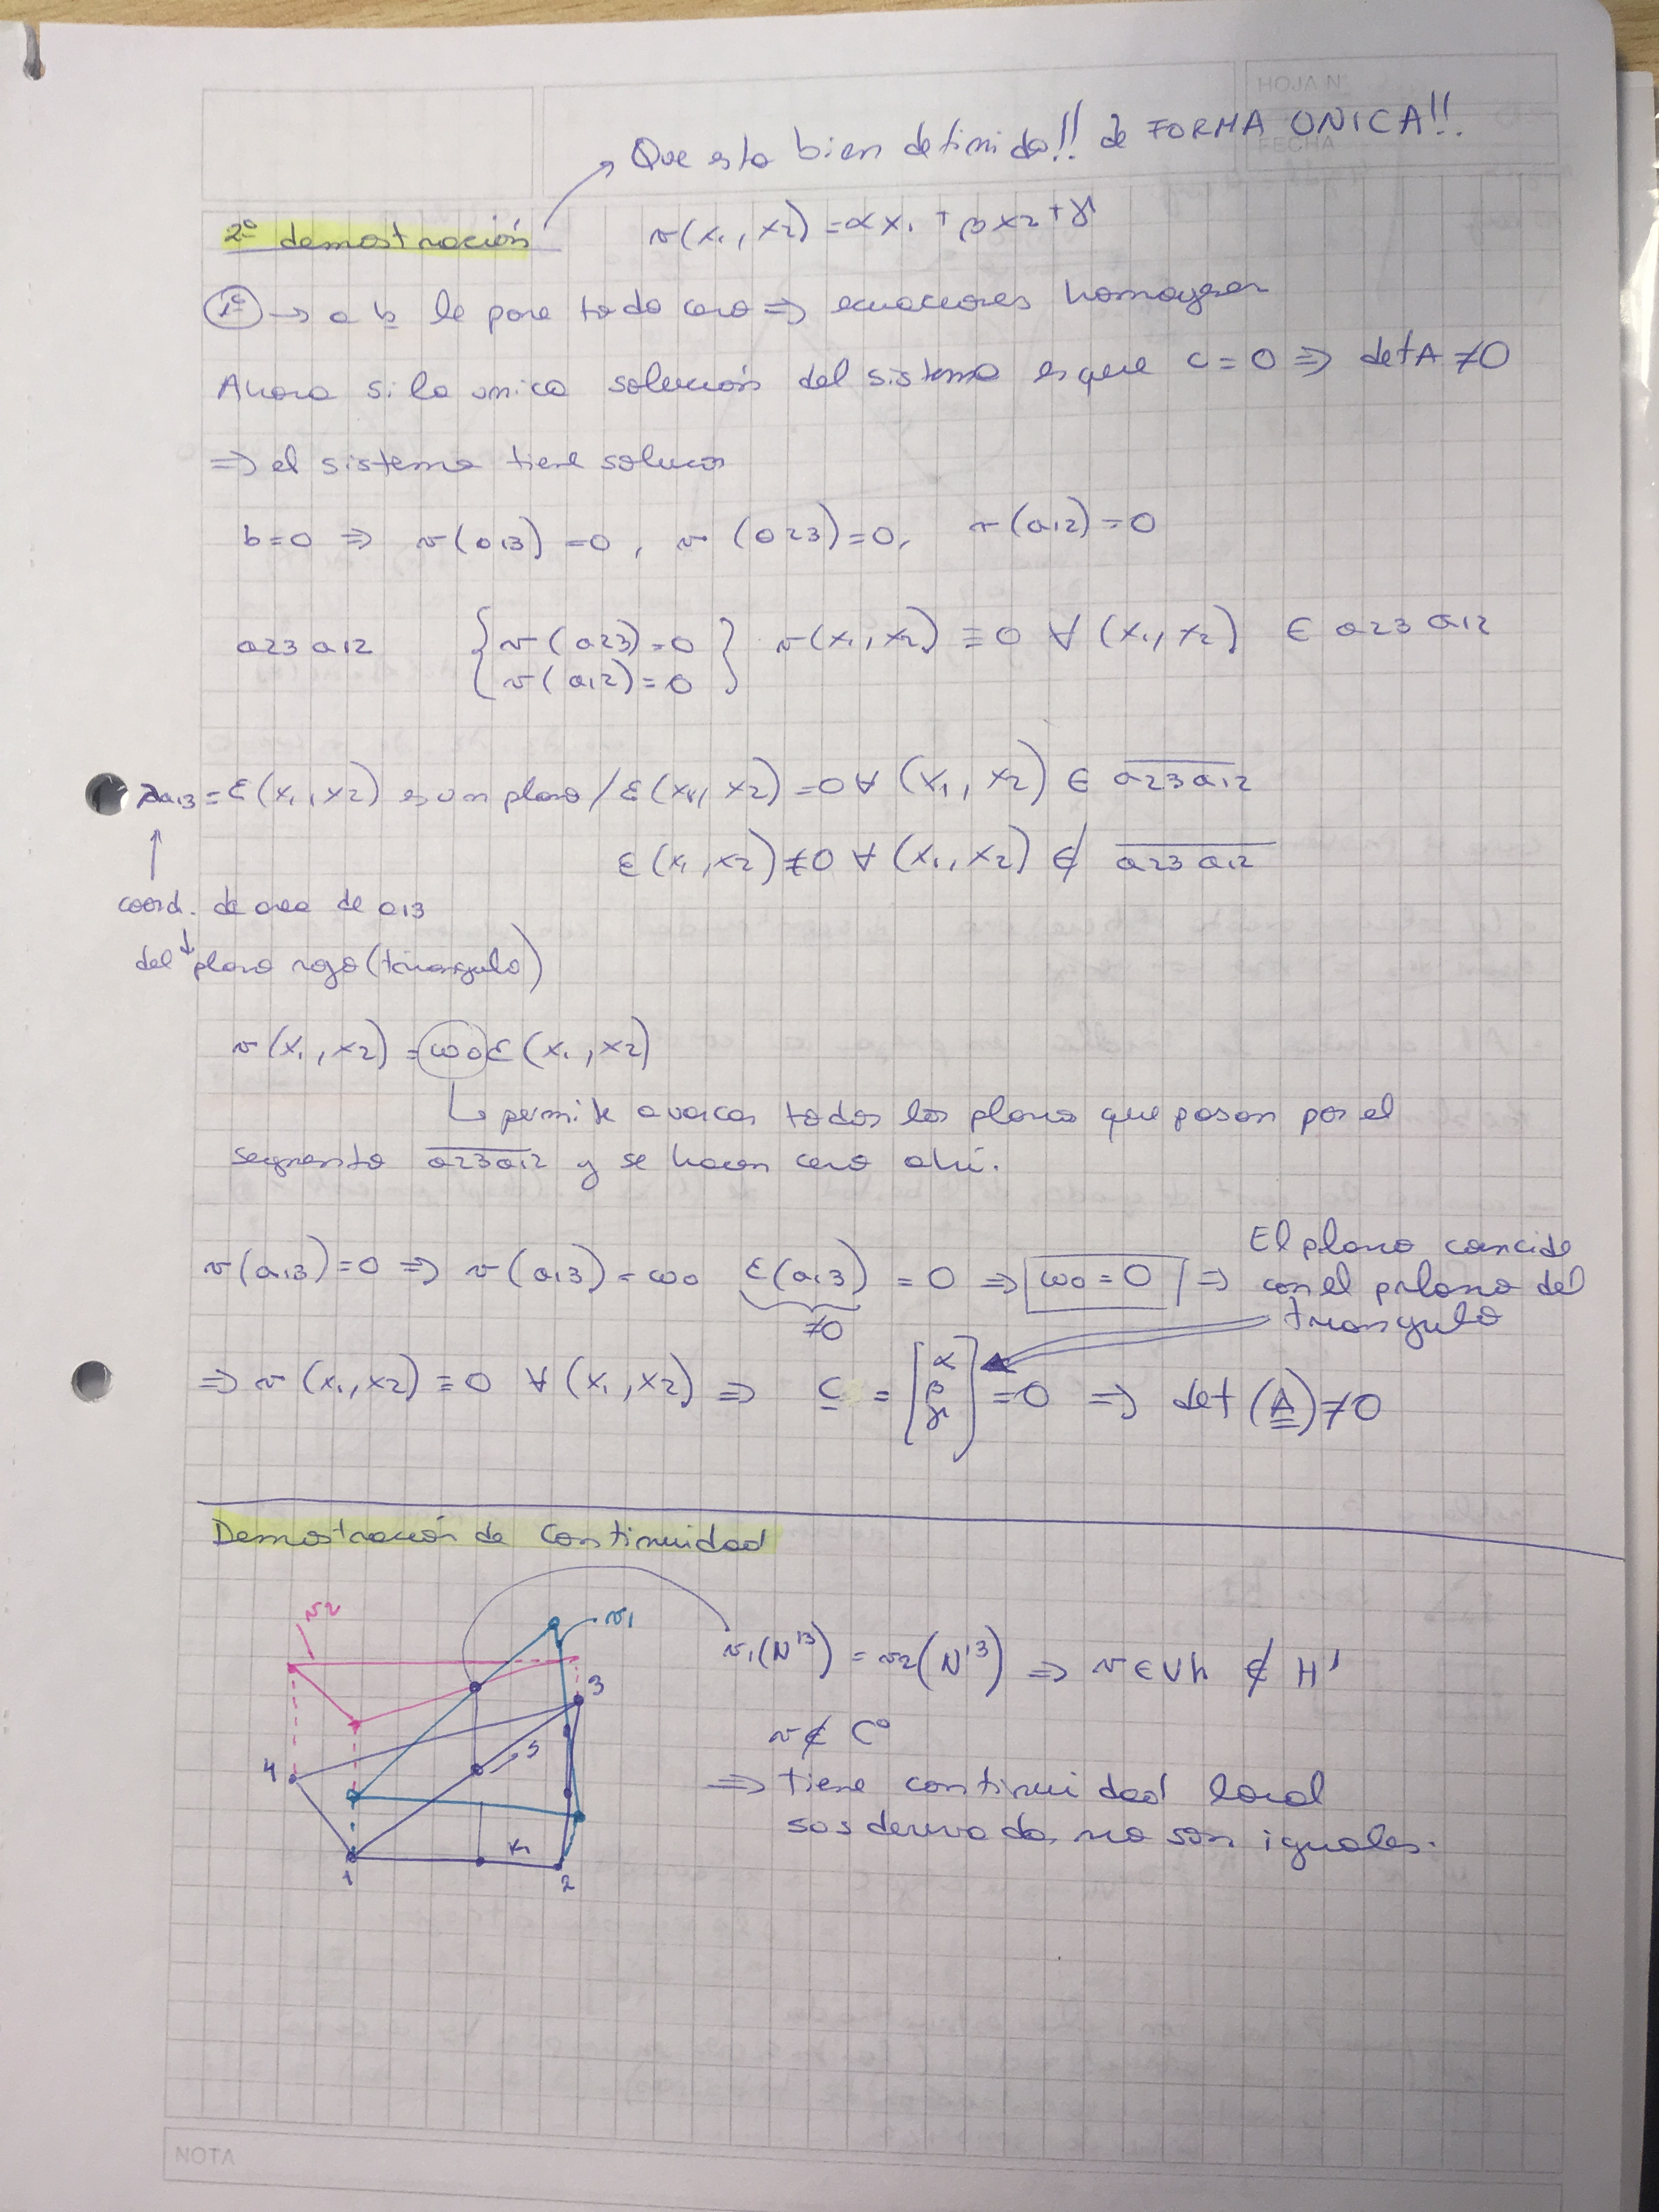 HOJA Nº
FECHA
Que esta bien definida!! de FORMA UNICA!!
2º demostración
v(x1, x2) = αx1 + βx2 + γ
1º → a b le pone todo cero ⇒ ecuaciones homogenea
Ahora si la unica solución del sistema es que c = 0 ⇒ det A ≠ 0
⇒ el sistema tiene solucion
b=0 ⇒ v(a13) = 0, v(a23) = 0, v(a12) = 0
a23 a12 { v(a23) = 0 } v(x1, x2) ≡ 0 ∀ (x1, x2) ∈ a23 a12
{ v(a12) = 0 }
λa13 = ε(x1, x2) es un plano / ε(x1, x2) = 0 ∀ (x1, x2) ∈ a23 a12
ε(x1, x2) ≠ 0 ∀ (x1, x2) ∉ a23 a12
coord. de area de a13
del plano rojo (triangulo)
v(x1, x2) = ω0 ε(x1, x2)
↳ permite avarcar todos los planos que pasan por el
segmento a23 a12 y se hacen cero ahí.
v(a13) = 0 ⇒ v(a13) = ω0 ε(a13) = 0 ⇒ ω0 = 0 ⇒
≠0
El plano coincide
con el plano del
triangulo
⇒ v(x1, x2) ≡ 0 ∀ (x1, x2) ⇒ c = [α β γ] = 0 ⇒ det (A) ≠ 0
Demostración de Continuidad
v2
v1
v1(N13) = v2(N13) ⇒ v ∈ Vh ∉ H1
3
v ∉ C0
4
⇒ tiene continuidad local
sus derivadas no son iguales.
1
2
NOTA